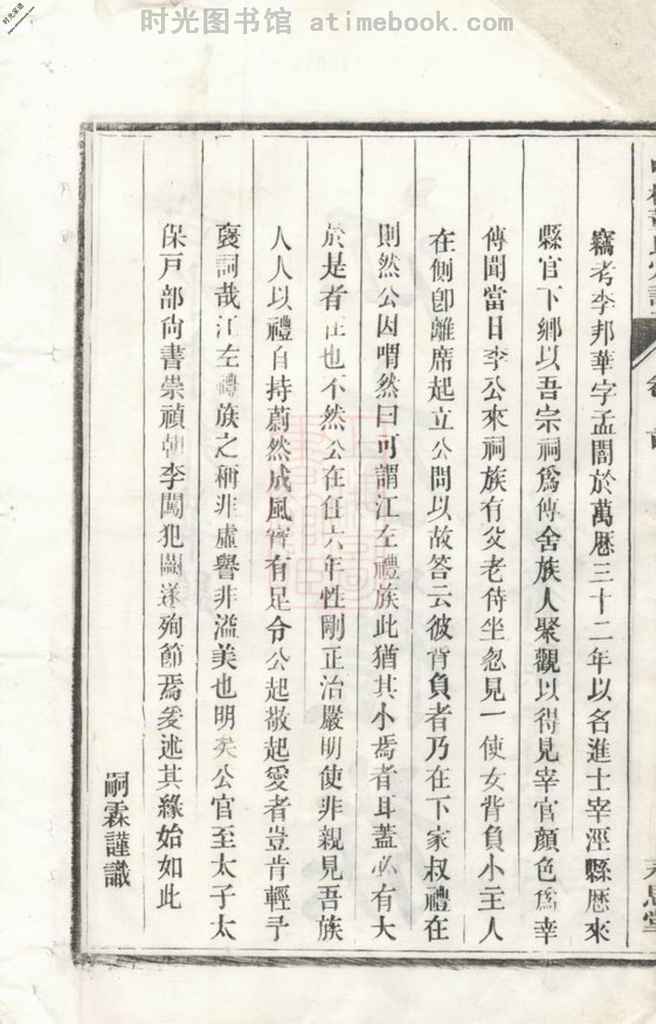 时光图书馆 atimebook.com
时光家谱
竊考李邦華字孟闇於萬曆三十二年以名進士宰涇縣歷來
縣官下鄉以吾宗祠爲傳舍族人聚觀以得見宰官顏色爲幸
傳聞當日李公來祠族有父老侍坐忽見一使女背負小主人
在側卽離席起立公問以故答云彼背負者乃在下家叔禮在
則然公因喟然曰可謂江左禮族此猶其小焉者耳蓋必有大
於是者在也不然公在任六年性剛正治嚴明使非親見吾族
人人以禮自持蔚然成風實有足令公起敬起愛者豈肯輕予
襃詞哉江左禮族之稱非虛譽非溢美也明矣公官至太子太
保戸部尙書崇禎朝李闖犯闕遂殉節焉爰述其緣始如此
嗣霖謹識